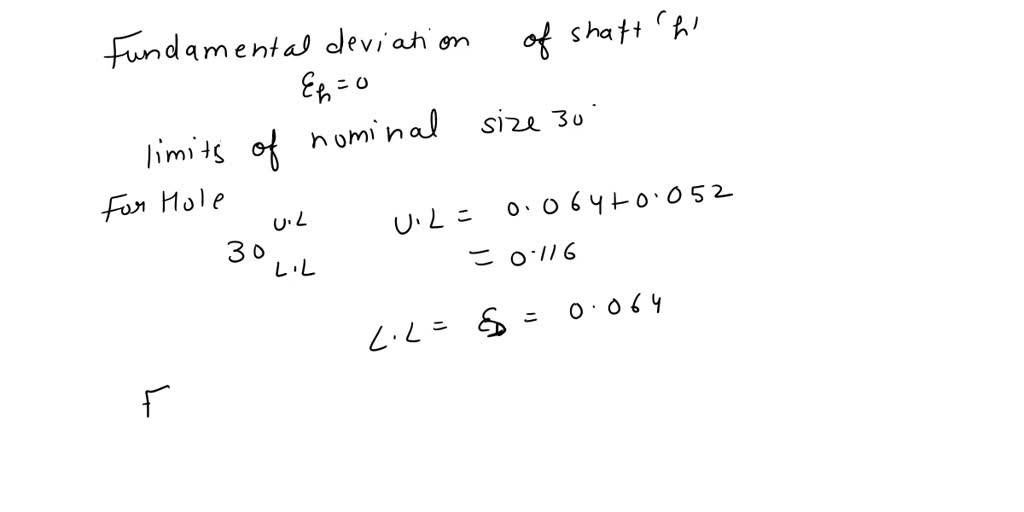 Fundamental deviation of shaft 'h'
εh = 0
limits of nominal size 30
For Hole
30 U.L L.L
U.L = 0.064 + 0.052
= 0.116
L.L = εD = 0.064
F